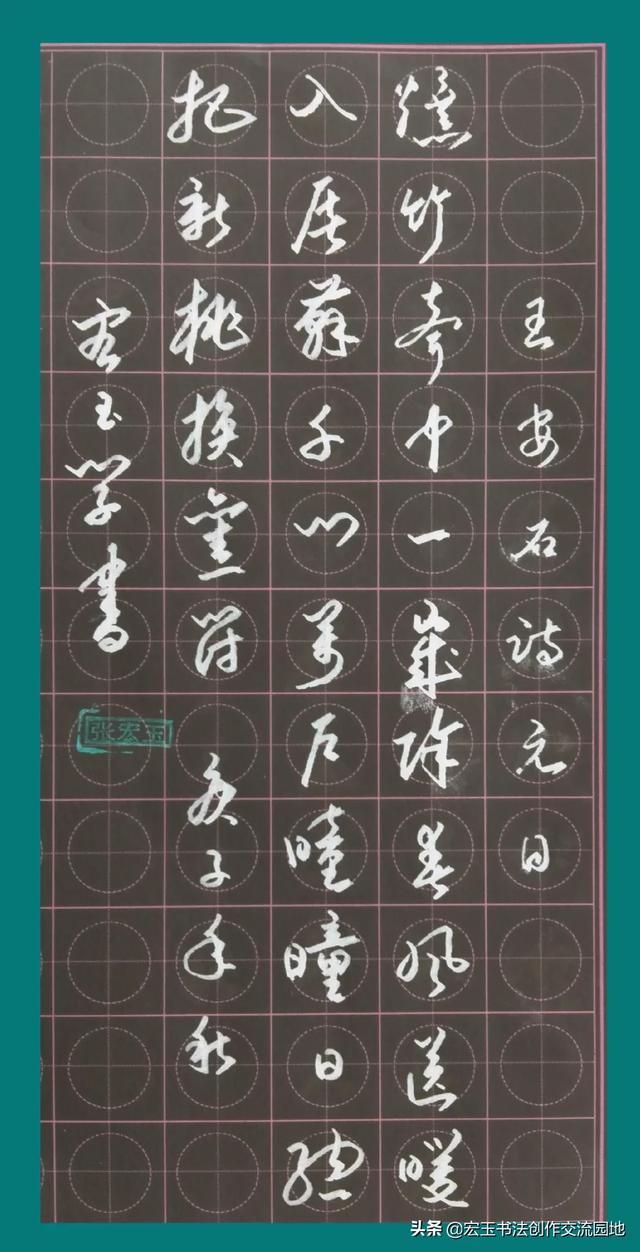 王安石诗元日
爆竹声中一岁除春风送暖
入屠蘇千门万户曈曈日總
把新桃换舊符 庚子年秋
宏玉学書
张宏玉
头条 @宏玉书法创作交流园地